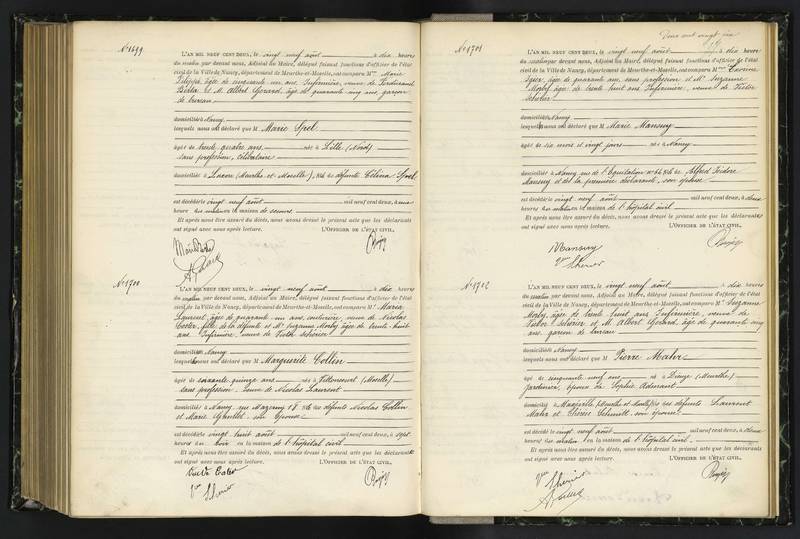 N° 1699
L'AN MIL NEUF CENT DEUX, le vingt neuf août à dix heures
du matin par devant nous, Adjoint au Maire, délégué faisant fonctions d'officier de l'état
civil de la Ville de Nancy, département de Meurthe-et-Moselle, ont comparu M Marie
âgée de cinquante un ans, Infirmière, veuve de Ferdinand
et M. Albert Gérard, âgé de quarante cinq ans, garçon
de bureau
domiciliés à Nancy
lesquels nous ont déclaré que M Marie Spel
âgée de trente quatre ans née à Lille (Nord)
sans profession, célibataire
domiciliée à (Meurthe et Moselle), fille de défunte Célina Spel
est décédée le vingt neuf août mil neuf cent deux, à
heures du matin en la maison de secours
Et après nous être assuré du décès, nous avons dressé le présent acte que les déclarants
ont signé avec nous après lecture. L'OFFICIER DE L'ÉTAT CIVIL.
N° 1700
L'AN MIL NEUF CENT DEUX, le vingt neuf août à dix heures
du matin par devant nous, Adjoint au Maire, délégué faisant fonctions d'officier de l'état
civil de la Ville de Nancy, département de Meurthe-et-Moselle, ont comparu M Maria
Laurent, âgée de quarante un ans, couturière, veuve de Nicolas
fille de la défunte et Me Suzanne Morby âgée de trente huit
ans Infirmière, veuve de Victor Scherier
domiciliées à Nancy
lesquelles nous ont déclaré que M Marguerite Collin
âgée de soixante quinze ans née à (Moselle)
sans profession, veuve de Nicolas Laurent
domiciliée à Nancy, rue 18 fille des défunts Nicolas Collin
et Marie son épouse
est décédée le vingt huit août mil neuf cent deux, à sept
heures du soir en la maison de l'hôpital civil
Et après nous être assuré du décès, nous avons dressé le présent acte que les déclarants
ont signé avec nous après lecture. L'OFFICIER DE L'ÉTAT CIVIL.
Deux cent vingt six
N° 1701
L'AN MIL NEUF CENT DEUX, le vingt neuf août à dix heures
du matin par devant nous, Adjoint au Maire, délégué faisant fonctions d'officier de l'état
civil de la Ville de Nancy, département de Meurthe-et-Moselle, ont comparu Mme
âgée de quarante ans, sans profession et Me Suzanne
Morby âgée de trente huit ans Infirmière, veuve de Victor
Scherier
domiciliées à Nancy
lesquelles nous ont déclaré que M Marie Mansuy
âgée de six mois et vingt jours née à Nancy
domiciliée à Nancy, rue de l'Equitation n° 64 fille de Alfred Isidore
Mansuy et de la première déclarante, son épouse
est décédée le vingt neuf août mil neuf cent deux, à deux
heures du matin en la maison de l'hôpital civil
Et après nous être assuré du décès, nous avons dressé le présent acte que les déclarantes
ont signé avec nous après lecture. L'OFFICIER DE L'ÉTAT CIVIL.
Mansuy
Vve Scherier
N° 1702
L'AN MIL NEUF CENT DEUX, le vingt neuf août à dix heures
du matin par devant nous, Adjoint au Maire, délégué faisant fonctions d'officier de l'état
civil de la Ville de Nancy, département de Meurthe-et-Moselle, ont comparu Me Suzanne
Morby, âgée de trente huit ans, Infirmière, veuve de
Victor Scherier et M. Albert Gérard, âgé de quarante cinq
ans, garçon de bureau
domiciliés à Nancy
lesquels nous ont déclaré que M Pierre Mahr
âgé de cinquante neuf ans né à Dieuze (Meurthe)
Jardinier, époux de Sophie
domicilié à Maxéville (Meurthe et Moselle) fils des défunts Laurent
Mahr et Thérèse Schmitt, son épouse
est décédé le vingt neuf août mil neuf cent deux, à deux
heures du matin en la maison de l'hôpital civil
Et après nous être assuré du décès, nous avons dressé le présent acte que les déclarants
ont signé avec nous après lecture. L'OFFICIER DE L'ÉTAT CIVIL.
Vve Scherier